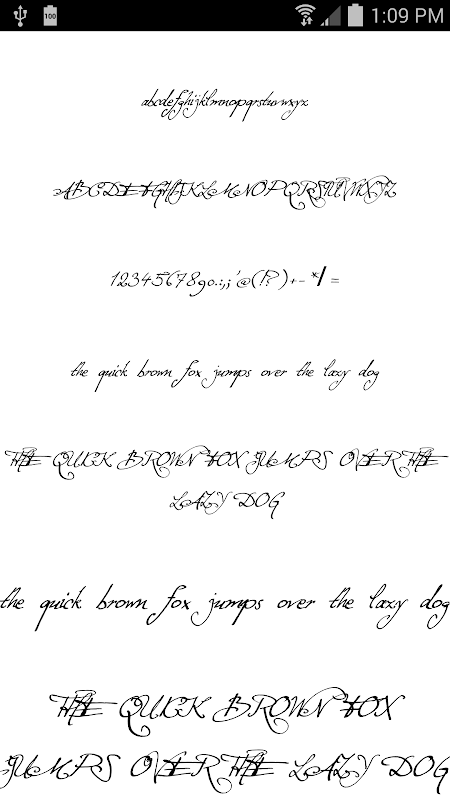 100 1:09 PM
abcdefghijklmnopqrstuvwxyz
ABCDEFGHIJKLMNOPQRSTUVWXYZ
1234567890.:,;'@(!?)+-*/=
the quick brown fox jumps over the lazy dog
THE QUICK BROWN FOX JUMPS OVER THE
LAZY DOG
the quick brown fox jumps over the lazy dog
THE QUICK BROWN FOX
JUMPS OVER THE LAZY DOG